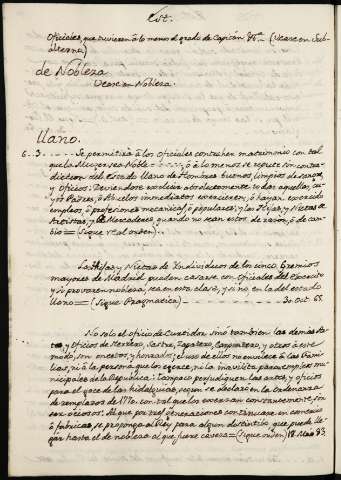 Est.
Oficiales, que tuvieren á lo menos el grado de Capitán &ª — (Vease en Sub-
alterna)
de Nobleza
Vease en Nobleza
Llano.
6. 3. - - - - Se permitirá á los Oficiales contraher matrimonio con tal
que la Muger sea Noble - - - - , ó á lo menos se repute sin contra-
diccion del Estado llano de Hombres buenos, limpios de sangre,
y Oficios. Deviendose excluir absolutamente todas aquellas, cu-
yos Padres, ó Abuelos inmediatos exercieren, ó hayan exercido
empleos, ó profesiones mecanicas, ó populares; y las Hijas, y Nietas de
Artistas, y de Mercaderes quando no sean estos de razón, ó de cam-
bio = (Sigue real orden).
Las Hijas, y Nietas de Individuos de los cinco Gremios
mayores de Madrid puedan casarse con Oficiales del Exercito
y si provaren nobleza, sea en esta clase, y si no en la del estado
llano = (Sigue Pragmatica) - - - - 30 Oct. 65.
No solo el oficio de Curtidor sino tambien las demas Ar-
tes, y Oficios de Herrero, Sastre, Zapatero, Carpintero, y otros á este
modo, son onestos, y honrados; el uso de ellos no envilece á las Fami-
lias, ni á la persona que los egerce, ni la inavilita para empleos mu-
nicipales de la Republica: Tampoco perjudiquen las artes, y oficios
para el goze de la hidalguia, segun se declaró en la ordenanza
de remplazos de 1770. con tal que los exerzan constantemente, sin
ser ociosos. Al que por tres generaciones continuare en comercio
ó fabricas, se proponga al Rey para algun distintibo que puede lle-
gar hasta el de nobleza al que fuere caveza = (Sigue orden) 18. Mar. 83.